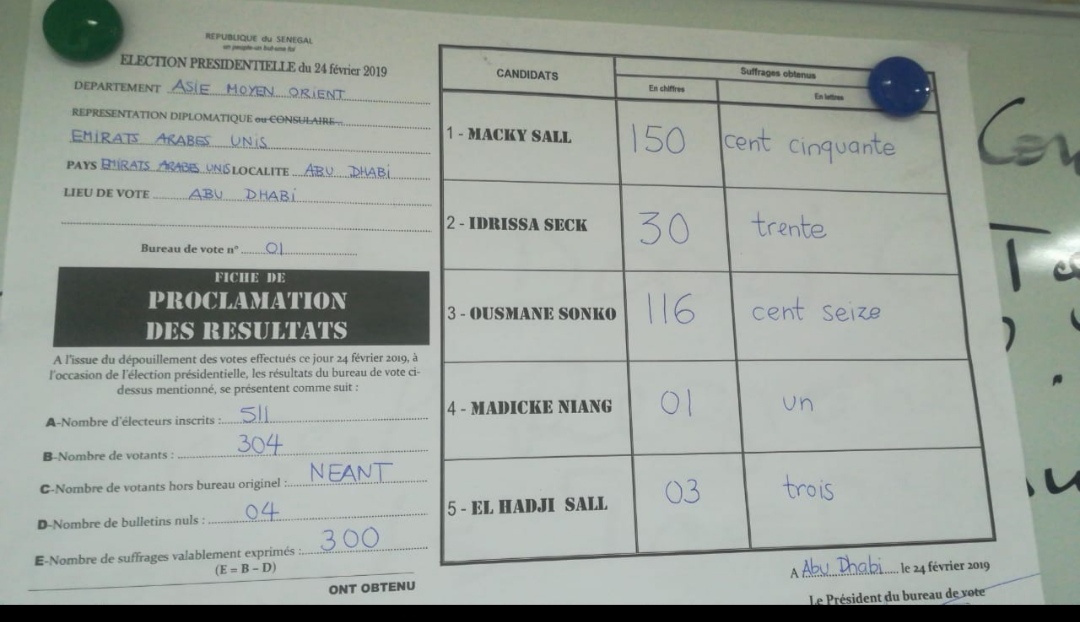 REPUBLIQUE du SENEGAL
un peuple-un but-une foi
ELECTION PRESIDENTIELLE du 24 février 2019
DEPARTEMENT ASIE MOYEN ORIENT
REPRESENTATION DIPLOMATIQUE ou CONSULAIRE
EMIRATS ARABES UNIS
PAYS EMIRATS ARABES UNIS LOCALITE ABU DHABI
LIEU DE VOTE ABU DHABI
Bureau de vote n° 01
FICHE DE
PROCLAMATION
DES RESULTATS
A l'issue du dépouillement des votes effectués ce jour 24 février 2019, à
l'occasion de l'élection présidentielle, les résultats du bureau de vote ci-
dessus mentionné, se présentent comme suit :
A-Nombre d'électeurs inscrits : 511
B-Nombre de votants : 304
C-Nombre de votants hors bureau originel : NEANT
D-Nombre de bulletins nuls : 04
E-Nombre de suffrages valablement exprimés : 300
(E = B - D)
ONT OBTENU
CANDIDATS Suffrages obtenus
En chiffres En lettres
1 - MACKY SALL 150 cent cinquante
2 - IDRISSA SECK 30 trente
3 - OUSMANE SONKO 116 cent seize
4 - MADICKE NIANG 01 un
5 - EL HADJI SALL 03 trois
A Abu Dhabi le 24 février 2019
Le Président du bureau de vote